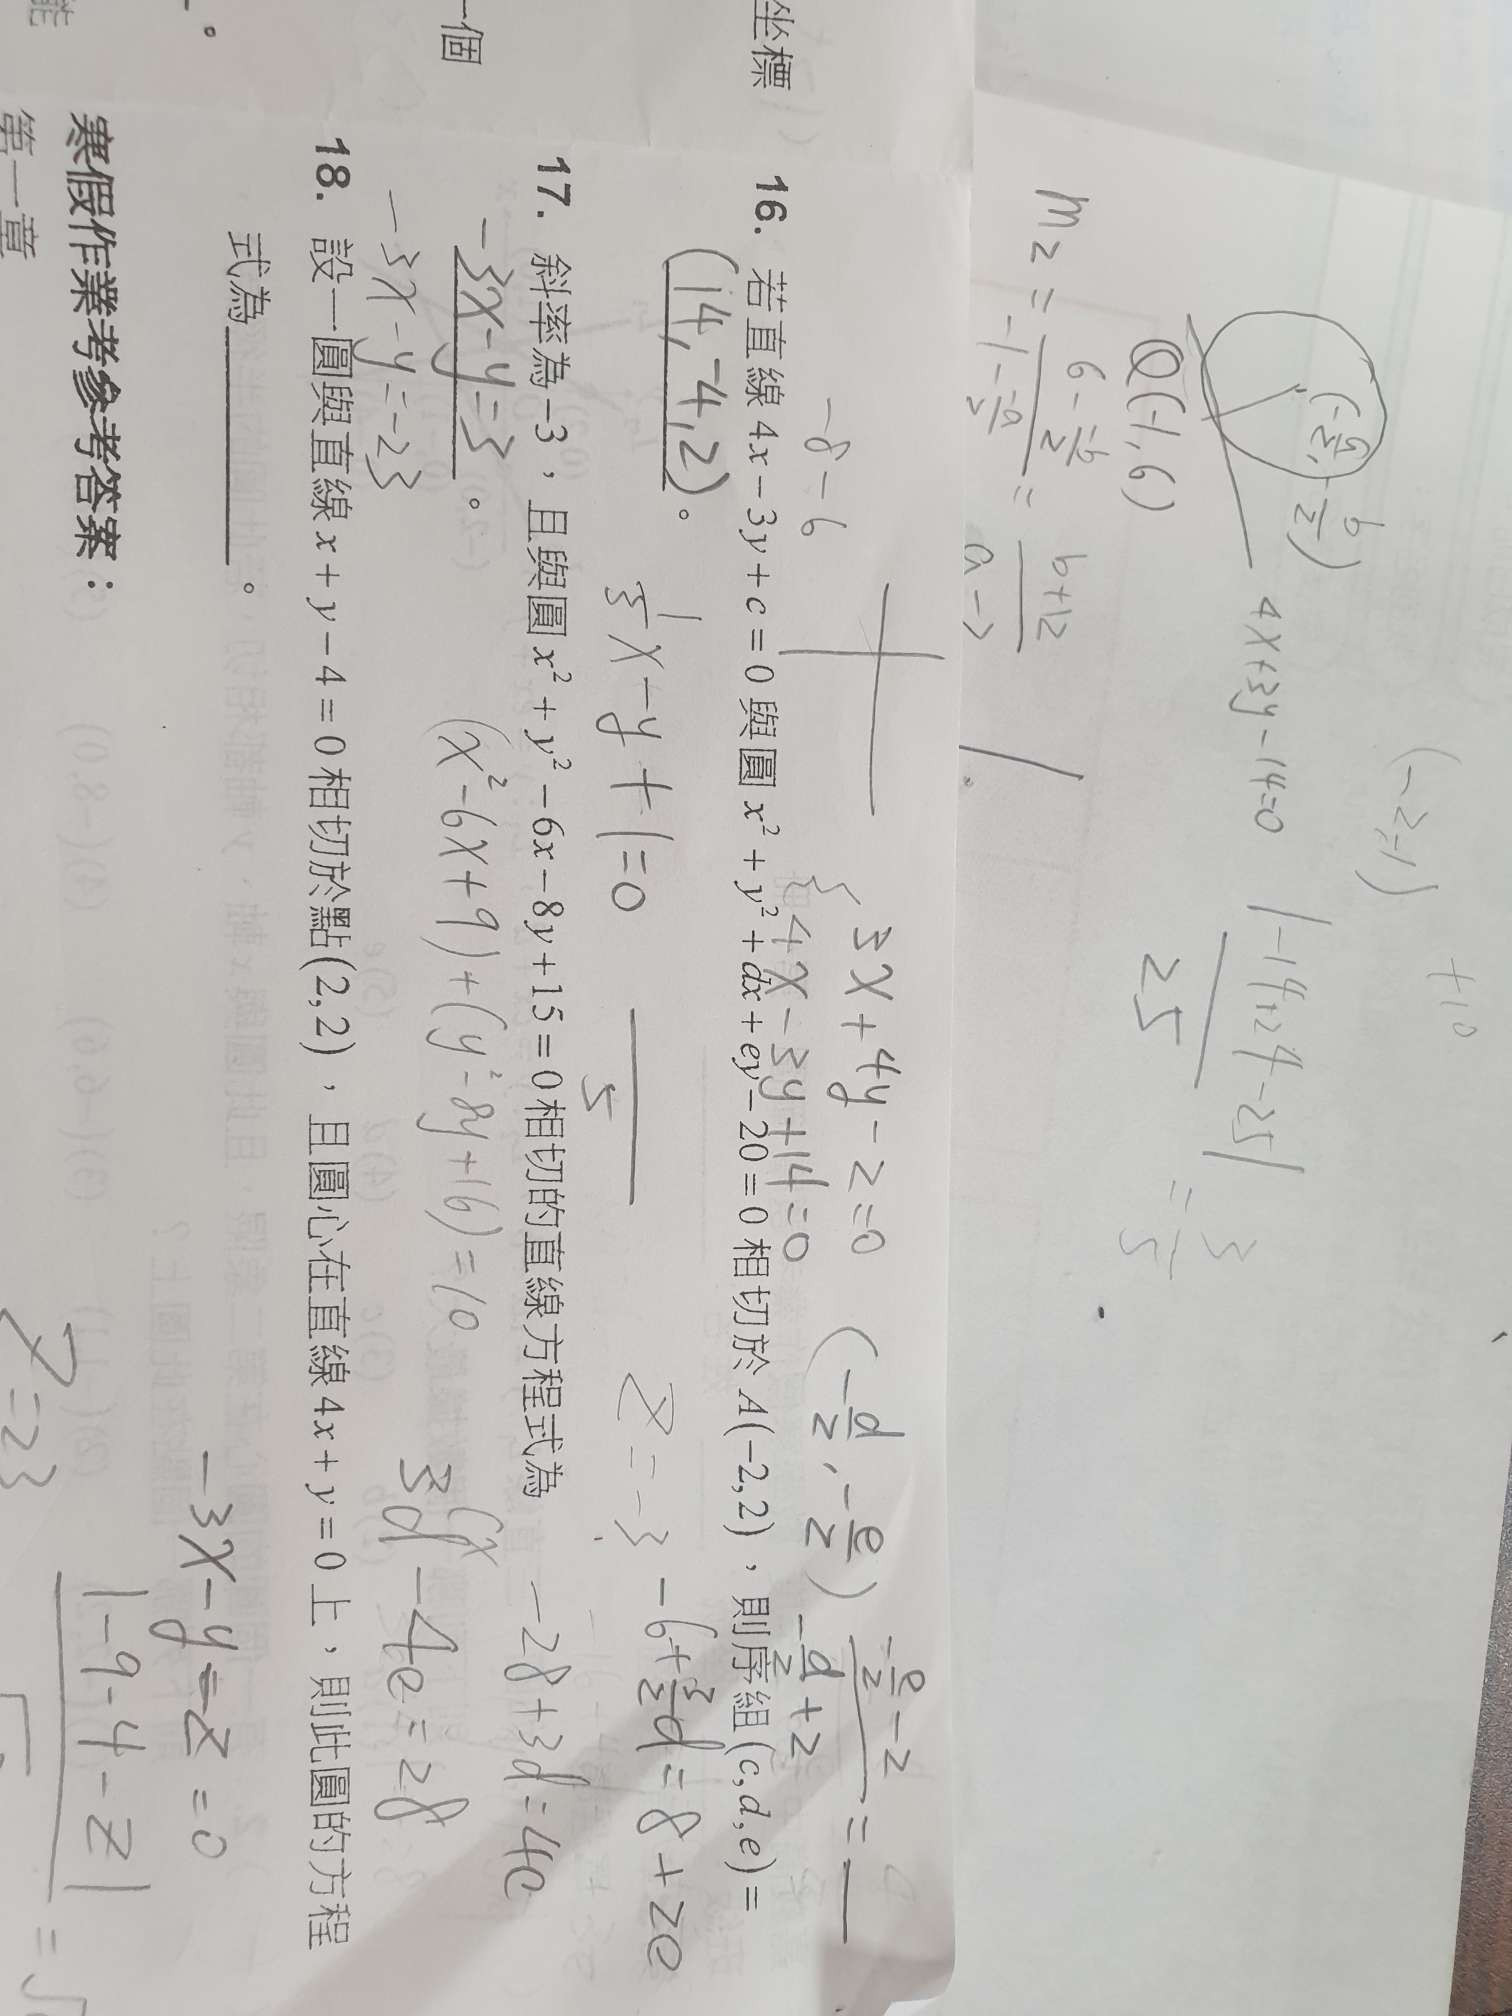 (-2,-1)
+10
(-a/2, -b/2)
4x+3y-14=0
|-14+24-25|
25
= 3/5
Q(-1,6)
m2 = (6 - -b/2)/(-1 - -a/2) = (b+12)/(a-
坐標
3x+4y-2=0
(-d/2, -e/2)
(-e/2 - 2)/(-d/2 + 2) =
-8-6
{ 4x-3y+14=0
16. 若直線 4x-3y+c=0 與圓 x²+y²+dx+ey-20=0 相切於 A(-2,2),則序組(c,d,e)=
(14,-4,2)。
1/3x-y+1=0
5
z=-3
-6+3/2d=8+2e
17. 斜率為-3,且與圓 x²+y²-6x-8y+15=0 相切的直線方程式為
-28+3d=4e
一個
-3x-y=3。
(x²-6x+9)+(y²-8y+16)=10
3d-4e=28
-3x-y=-23
18. 設一圓與直線 x+y-4=0 相切於點(2,2),且圓心在直線 4x+y=0 上,則此圓的方程
式為 。
-3x-y-z=0
|-9-4-z|
z=23
寒假作業考參考答案:
第一章
能